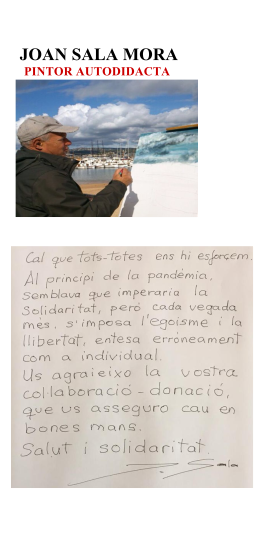 JOAN SALA MORA
PINTOR AUTODIDACTA
Cal que tots-totes ens hi esforcem.
Al principi de la pandèmia,
semblava que imperaria la
Solidaritat, però cada vegada
més, s'imposa l'egoisme i la
llibertat, entesa erròneament
com a individual.
Us agraeixo la vostra
col·laboració - donació,
que us asseguro cau en
bones mans.
Salut i solidaritat.
J. Sala